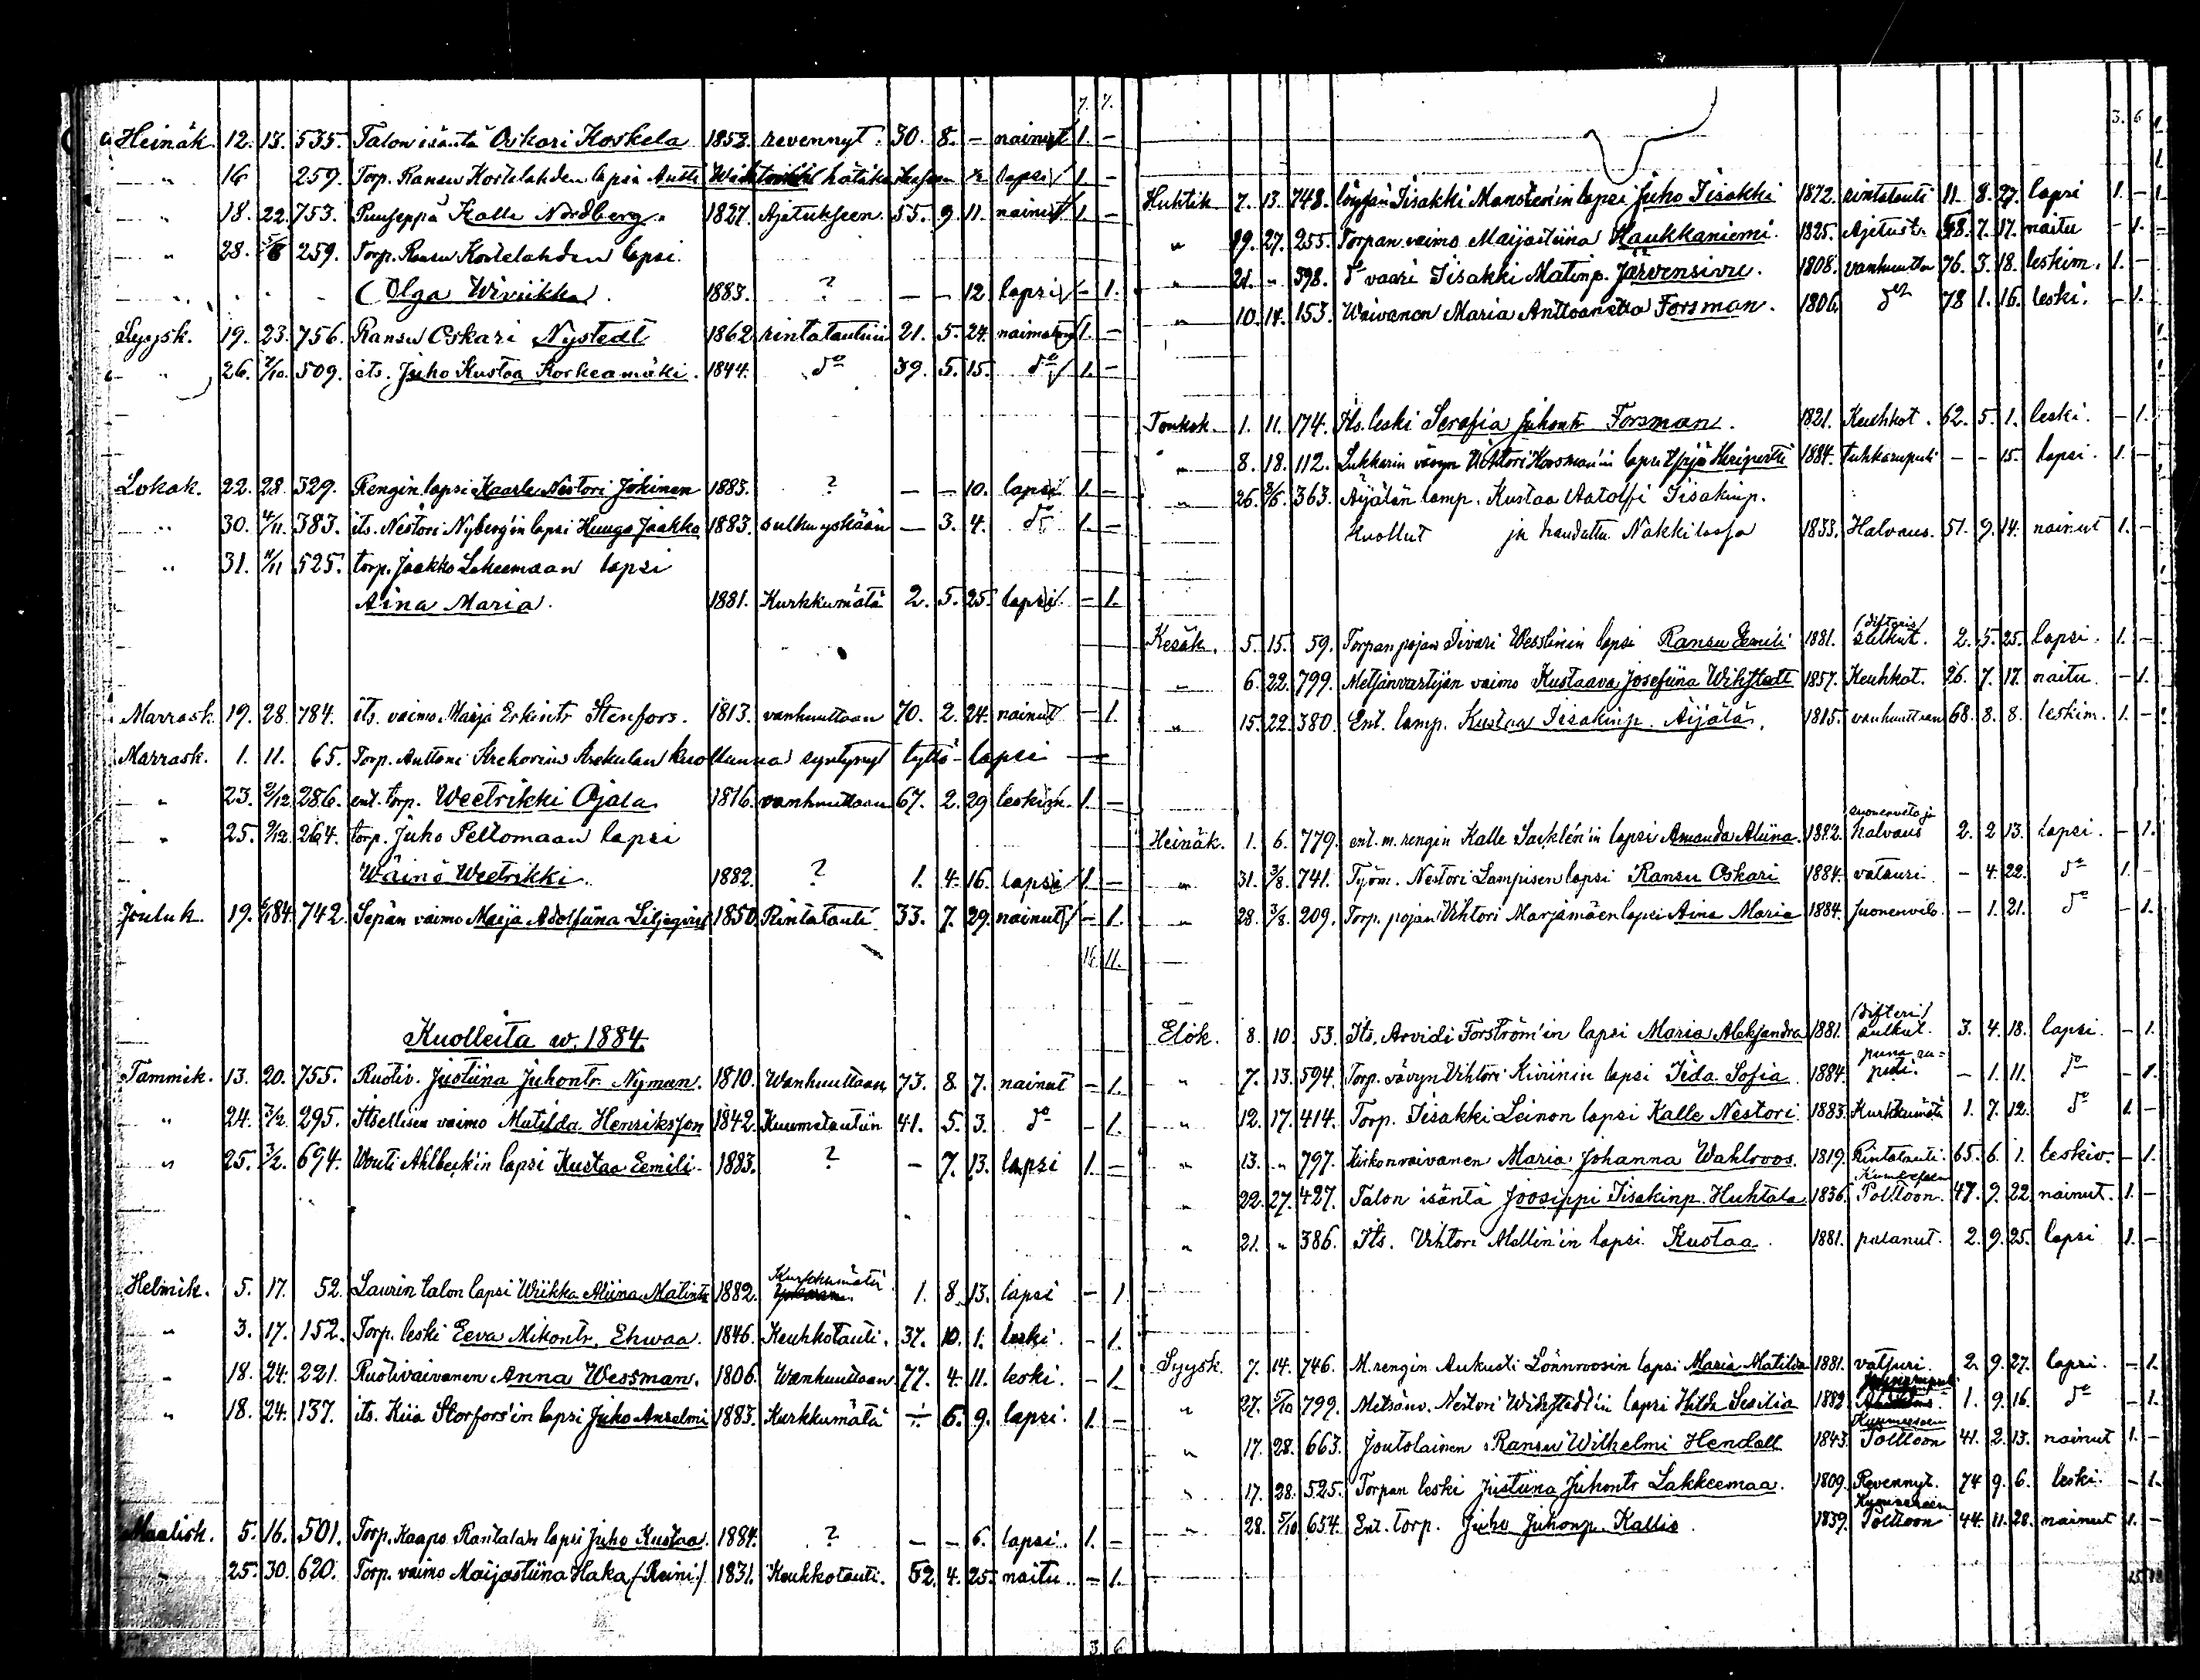 7. 7.
Heinäk. 12. 13. 535. Talon isäntä Oskari Koskela 1853. revennyt. 30. 8. - nainut 1. -
" 16 259. Torp. Ransu Kortelahden lapsi Antti hätäkasteessa lapsi 1. -
" 18. 22. 753. Puuseppä Kalle Nordberg. 1827. Ajetukseen. 55. 9. 11. nainut. 1. -
" 28. 5/8 259. Torp. Ransu Kortelahden lapsi.
" " - - (Olga Wiviikka). 1883. ? - - 12 lapsi - 1.
Syysk. 19. 23. 756. Ransu Oskari Nystedt 1862 rintatautiin 21. 5. 24. naimaton 1. -
" 26. 7/10. 509. its. Juho Kustaa Korkeamäki. 1844. do 39. 5. 15. do 1. -
Lokak. 22. 28. 329. Rengin lapsi Kaarle Nestori Jokinen 1883. ? - - 10. lapsi 1. -
" 30. 4/11. 383. its. Nestori Nyberg'in lapsi Huugo Jaakko 1883. sulkuyskään - 3. 4. do 1. -
" 31. 11/11 525. torp. Jaakko Lakeemaan lapsi
Aina Maria. 1881. Kurkkumätä 2. 5. 25. lapsi - 1.
Marrask. 19. 28. 784. its. vaimo Maija Erkintr Stenfors. 1813. vanhuuttaan 70. 2. 24. nainut - 1.
Marrask. 1. 11. 65. Torp. Anttoni Krekorius Krekulan kuolleenna syntynyt tyttö-lapsi
" 23. 2/12 286. ent. torp. Weetrikki Ojala 1816. vanhuuttaan 67. 2. 29 leskim. 1. -
" 25. 9/12. 264. torp. Juho Peltomaan lapsi
Wäinö Weetrikki. 1882. ? 1. 4. 16. lapsi 1. -
Jouluk. 19. 6/1 84. 742. Sepän vaimo Maija Adolfiina Liljeqvist 1850. Rintatauti 33. 7. 29. nainut - 1.
14. 11.
Kuolleita w. 1884.
Tammik. 13. 20. 755. Ruotiv. Justiina Juhontr. Nyman. 1810. Wanhuuttaan 73. 8. 7. nainut - 1.
" 24. 3/2. 295. Itsellisen vaimo Matilda Henriksson 1842. Kuumetautiin 41. 5. 3. do - 1.
" 25. 3/2. 694. Wouti Ahlbeckin lapsi Kustaa Eemili 1883. ? - 7. 13. lapsi 1. -
Helmik. 5. 17. 52. Laurin talon lapsi Wiikka Aliina Matintr 1882. Kurkkumätä 1. 8. 13. lapsi - 1
" 3. 17. 152. Torp. leski Eeva Mikontr. Ehwaa. 1846. Keuhkotauti. 37. 10. 1. leski. - 1.
" 18. 24. 221. Ruotivaivanen Anna Wessman. 1806. Wanhuuttaan 77. 4. 11. leski. - 1.
" 18. 24. 137. its. Kiia Storfors'in lapsi Juho Anselmi 1883. Kurkkumätä - 6. 9. lapsi. 1. -
Maalisk. 5. 16. 501. Torp. Kaapo Rantalan lapsi Juho Kustaa. 1884. ? - - 6. lapsi. 1. -
" 25. 30. 620. Torp. vaimo Maijastiina Haka (Reini) 1831. Keuhkotauti. 52. 4. 25. naitu. - 1.
3. 6
3. 6
Huhtik 7. 13. 748. Iisakki Manstén'in lapsi Juho Iisakki 1872. rintatauti 11. 8. 27. lapsi 1. -
" 19. 27. 255. Torpan vaimo Maijastiina Haukkaniemi. 1825. Ajetust. 58. 7. 17. naitu - 1.
" 21. " 398. do vaari Iisakki Matinp. Järvensivu. 1808. vanhuutta 76. 3. 18. leskim. 1. -
" 10. 14. 153. Waivanen Maria Anttoanetta Forsman. 1806. do 78 1. 16. leski. - 1.
Toukok. 1. 11. 174. Its. leski Serafia Juhontr Forsman. 1821. Keuhkot. 62. 5. 1. leski. - 1.
" 8. 18. 112. Lukkarin vävyn Vihtori Koosman'in lapsi Yrjö Heripertti 1884. tuhkarupuli - - 15. lapsi. 1. -
" 26. 8/6. 363. Äijälän lamp. Kustaa Aatolfi Iisakinp.
Kuollut ja haudattu Nakkilassa 1833. Halvaus. 51. 9. 14. nainut 1. -
Kesäk. 5. 15. 59. Torpan pojan Iivari Wesslin'in lapsi Ransu Eemili 1881. (difteris) sulkut. 2. 5. 25. lapsi. 1. -
" 6. 22. 799. Metsänvartijan vaimo Kustaava Josefiina Wikstedt 1857. Keuhkot. 26. 7. 17. naitu - 1.
" 15. 22. 380. Ent. lamp. Kustaa Iisakinp. Äijälä. 1815. vanhuuttaan 68. 8. 8. leskim. 1. -
Heinäk. 1. 6. 779. ent. m. rengin Kalle Sacklén'in lapsi Amanda Aliina. 1882. suonenveto ja halvaus 2. 2 13. lapsi. - 1.
" 31. 3/8. 741. Työm. Nestori Lampisen lapsi Ransu Oskari 1884. vatsuri - 4. 22. do 1. -
" 28. 3/8. 209. Torp. pojan Vihtori Marjamäen lapsi Aina Maria 1884. suonenveto. - 1. 21. do - 1.
Elok. 8. 10. 53. Its. Arvidi Forström'in lapsi Maria Aleksandra 1881. (difteri) sulkut. 3. 4. 18. lapsi. - 1.
" 7. 13. 594. Torp. vävyn Vihtori Kiviinin lapsi Iida Sofia 1884. puna-ru=puli. - 1. 11. do - 1.
" 12. 17. 414. Torp. Iisakki Leinon lapsi Kalle Nestori 1883. Kurkkumätä 1. 7. 12. do 1. -
" 13. " 797. Kirkonvaivanen Maria Johanna Wahlroos. 1819. Rintatauti. 65. 6. 1. leskiv. - 1.
" 22. 27. 427. Talon isäntä Joosippi Iisakinp. Huhtala 1836. Polttoon. 47. 9. 22. nainut. 1. -
" 21. " 386. Its. Vihtori Mellin'in lapsi Kustaa. 1881. palanut. 2. 9. 25. lapsi 1. -
Syysk. 7. 14. 746. M. rengin Aukusti Lönnroosin lapsi Maria Matilda 1881. vatsuri. 2. 9. 27. lapsi. - 1.
" 27. 5/10 799. Metsänv. Nestori Wikstedt'in lapsi Hilda Sesilia 1882. 1. 9. 16. do - 1.
" 17. 28. 663. Joutolainen Ransu Wilhelmi Hendell 1843. Polttoon 41. 2. 13. nainut 1. -
" 17. 28. 525. Torpan leski Justiina Juhontr Lakkeemaa. 1809. Revennyt. 74 9. 6. leski. - 1.
" 28. 5/10 654. Ent. torp. Juho Juhonp. Kallio. 1839. Polttoon 44. 11. 28. nainut 1. -